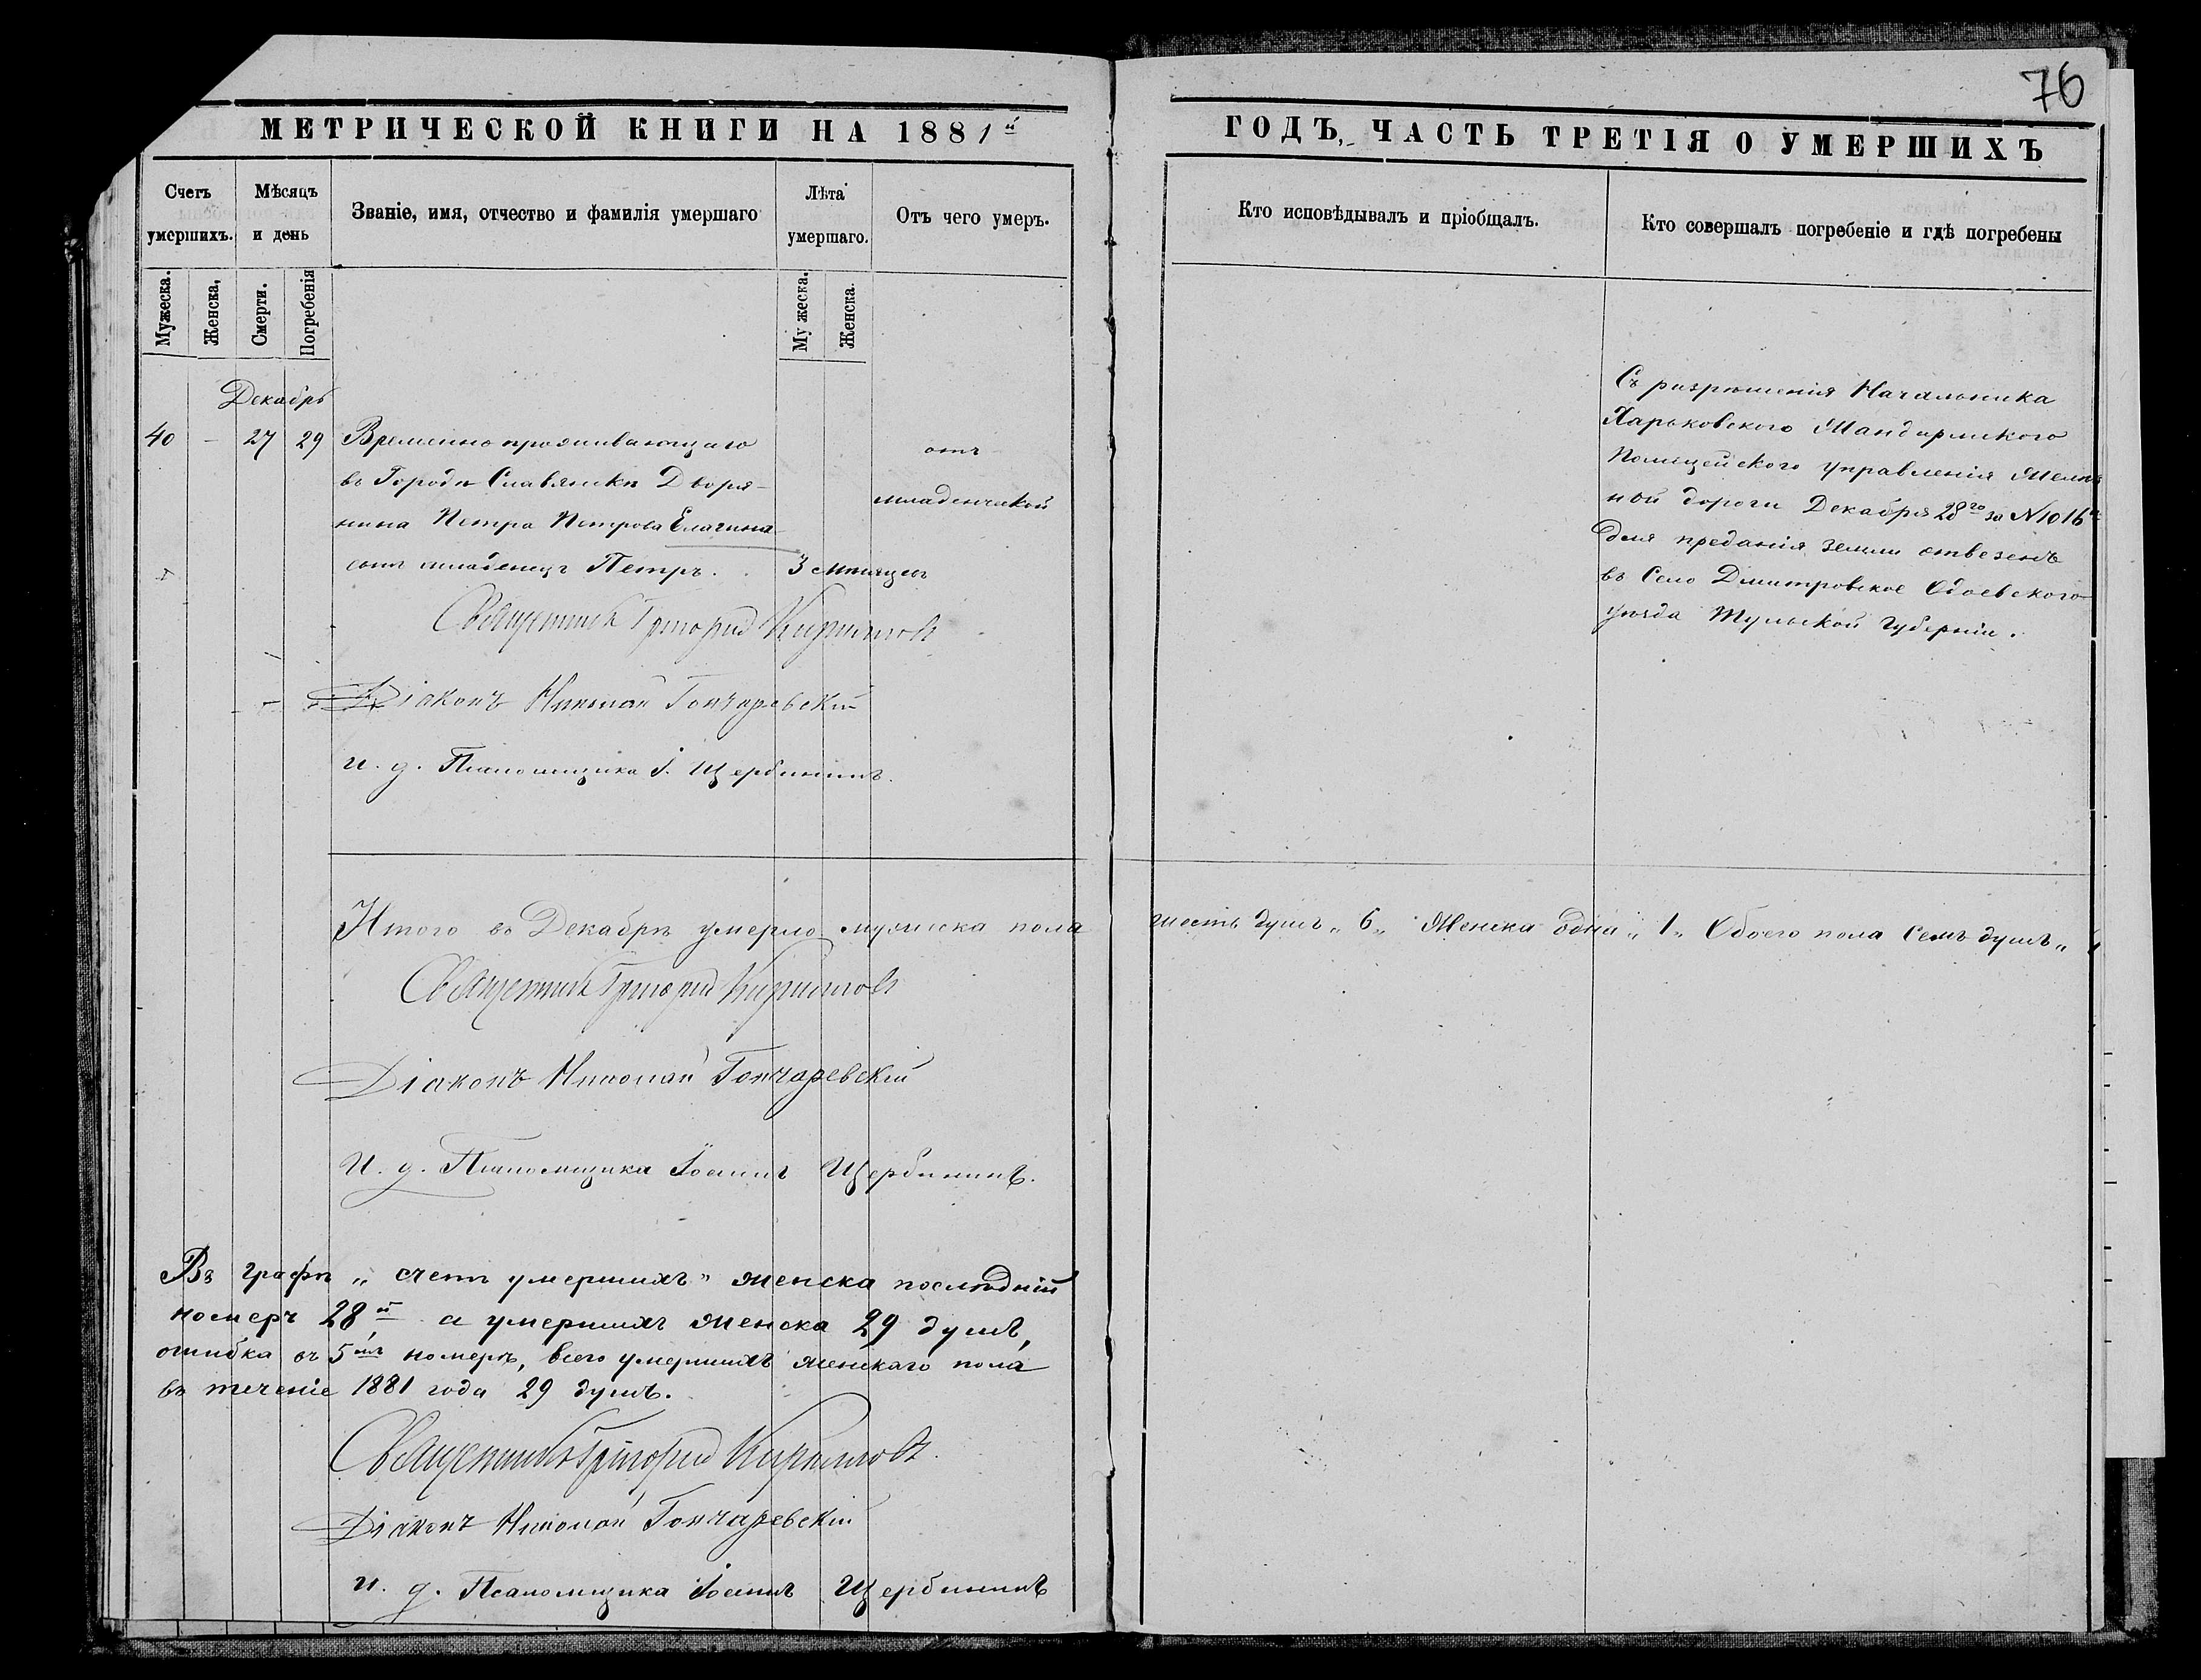 76
МЕТРИЧЕСКОЙ КНИГИ НА 1881й
ГОДЪ, ЧАСТЬ ТРЕТІЯ О УМЕРШИХЪ
Счетъ умершихъ.
Мѣсяцъ и день
Званіе, имя, отчество и фамилія умершаго
Лѣта умершаго.
Отъ чего умеръ.
Кто исповѣдывалъ и пріобщалъ.
Кто совершалъ погребеніе и гдѣ погребены
Мужеска.
Женска,
Смерти.
Погребенія
Мужеска.
Женска.
Декабрь
40 – 27 29 Временно проживающаго
въ Городѣ Славянскѣ Дворя-
нина Петра Петрова Елагина
сынъ младенецъ Петръ. 3 мѣсяцевъ
отъ
младенческой
Съ разрѣшенія Начальника
Харьковского Жандармского
Полицейского управленія Желѣз
ной дороги Декабря 28го за №1016м
для преданія земли отвезенъ
въ Село Дмитровское Одоевского
уѣзда Тульской Губерніи.
Священникъ Григорій Кирилловъ
Діаконъ Николай Гончаревскій
И. д. Псаломщика І. Щербининъ.
Итого въ Декабрѣ умерло мужеска пола шесть душъ „6„ Женска одна „1„ Обоего пола Семь душъ „
Священникъ Григорій Кирилловъ
Діаконъ Николай Гончаревскій
И. д. Псаломщика Іоаннъ Щербининъ.
Въ графѣ „счетъ умершихъ" женска послѣдній
номеръ 28й а умершихъ женска 29 душъ,
ошибка въ 5мъ номерѣ, всего умершихъ женскаго пола
въ теченіе 1881 года 29 душъ.
Священникъ Григорій Кирилловъ.
Діаконъ Николай Гончаревскій
И. д. Псаломщика Іоаннъ Щербининъ